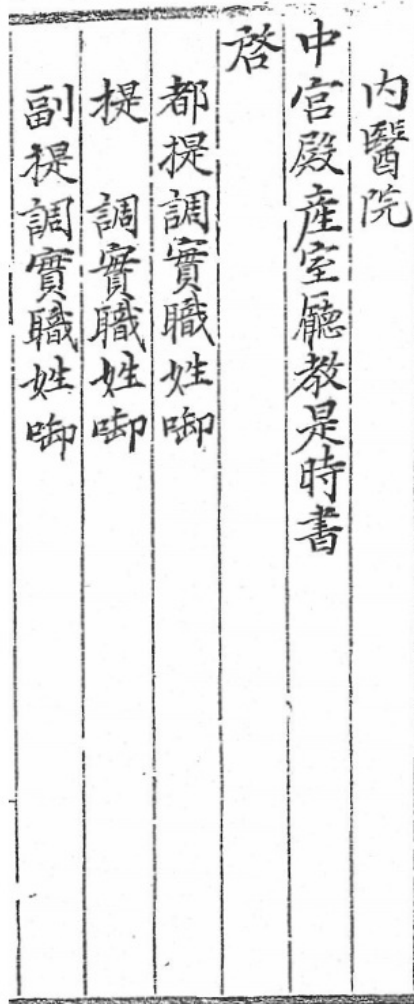 內醫院
中宮殿產室廳教是時書
啓
都提調實職姓啣
提 調實職姓啣
副提調實職姓啣